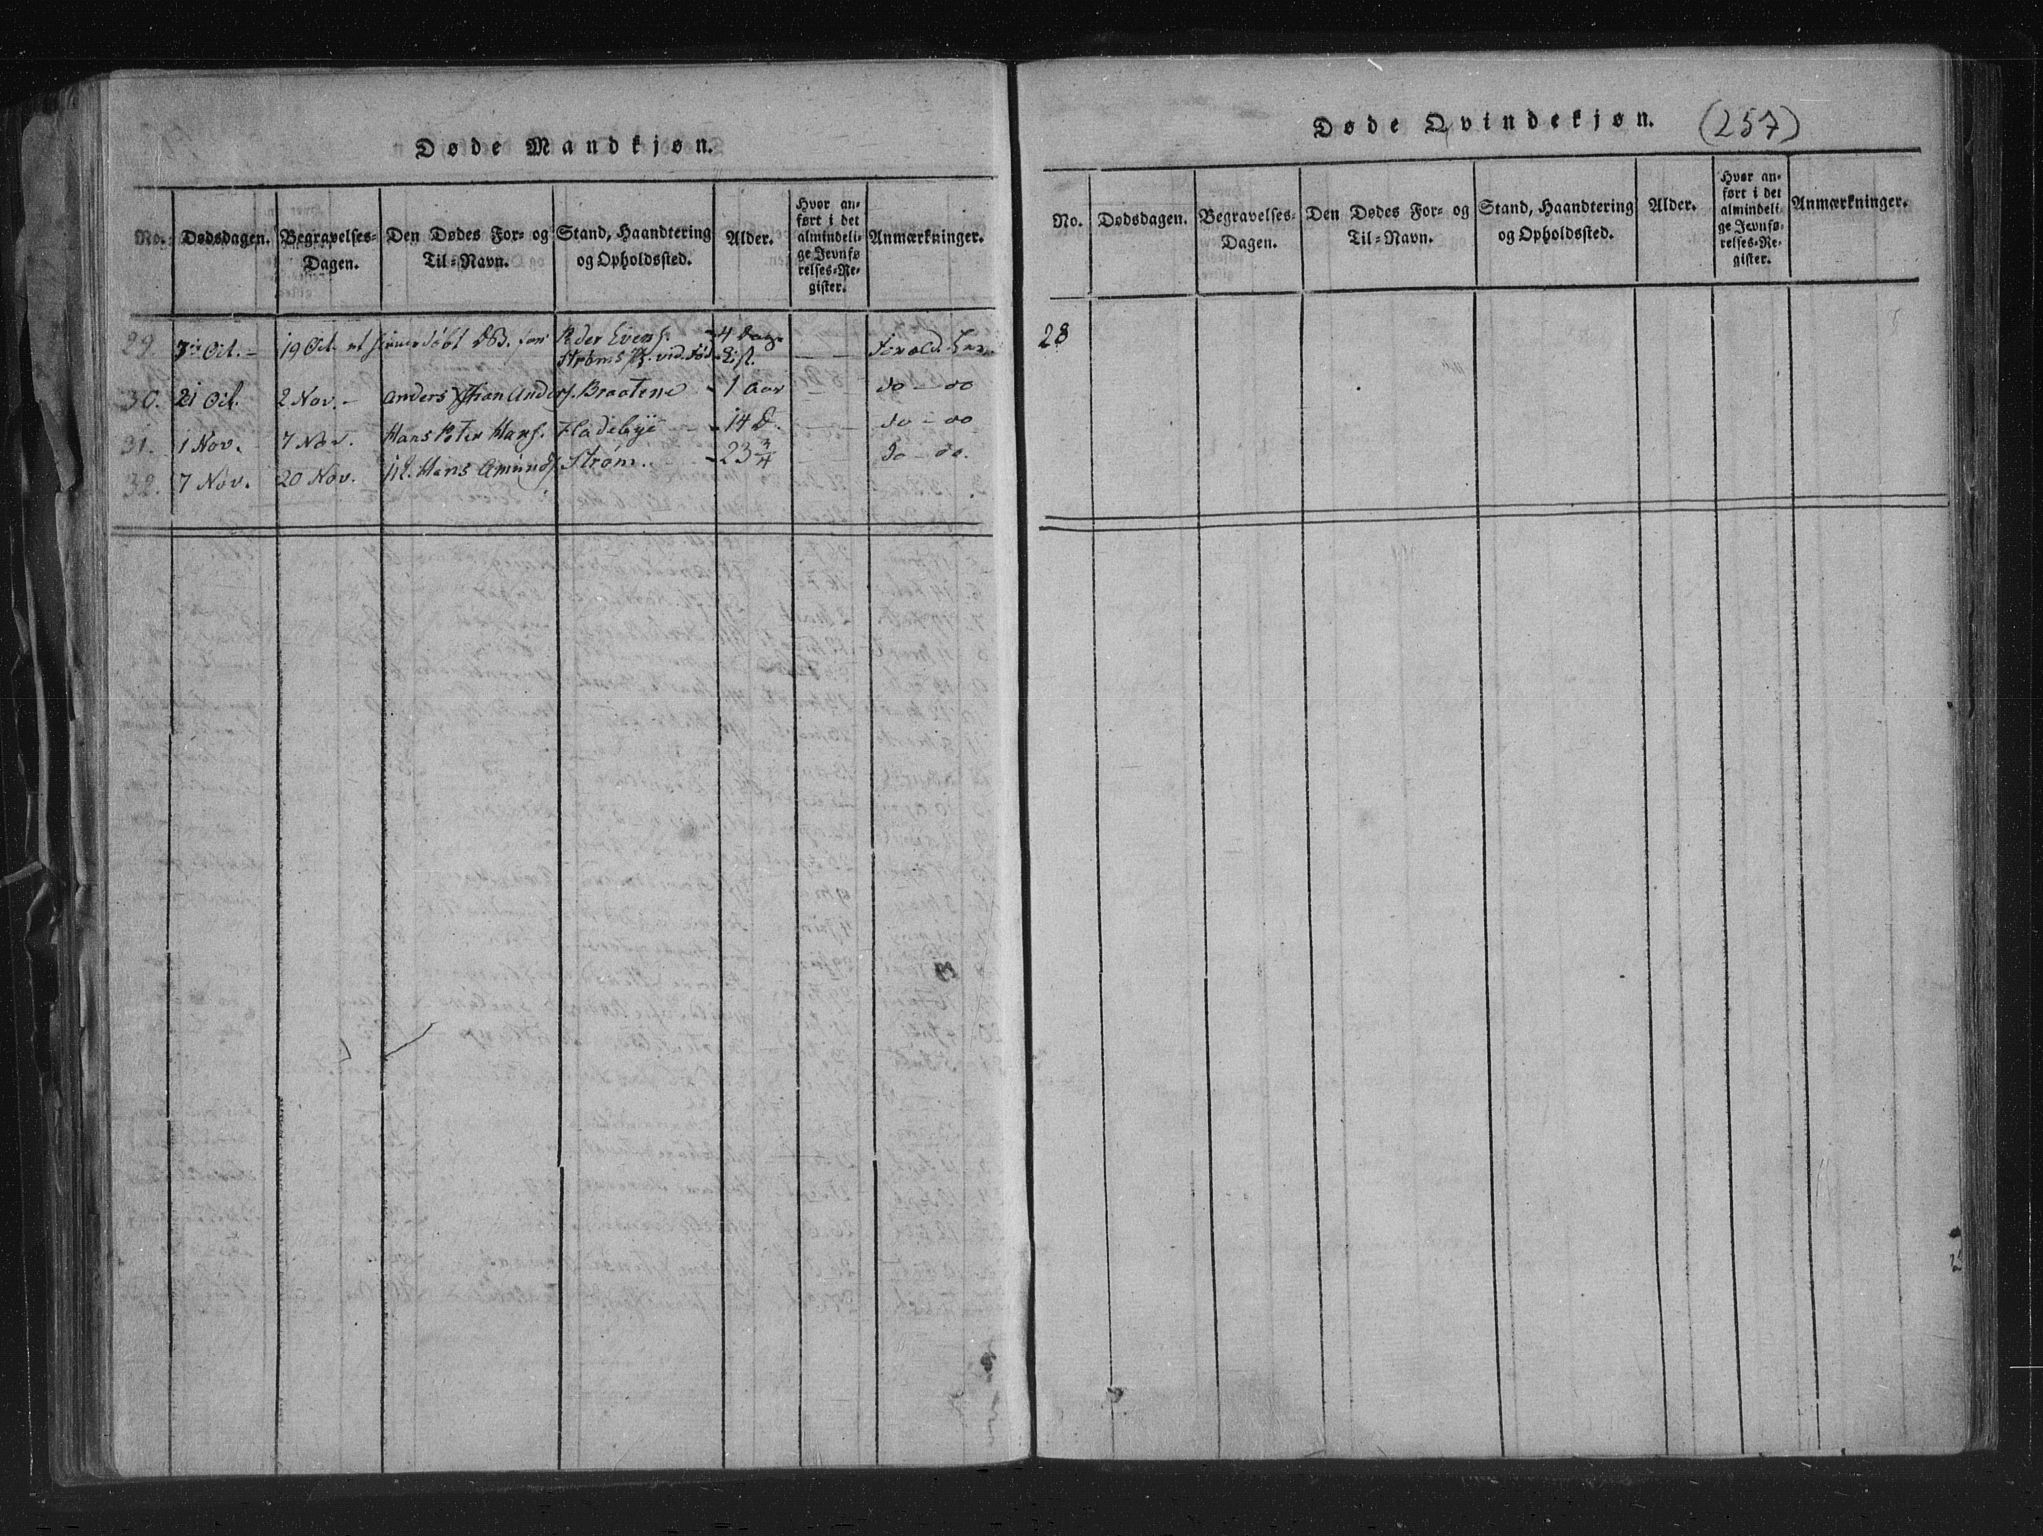 Døde Mandkjøn.
No. Dødsdagen. Begravelses-Dagen. Den Dødes For- og Til-Navn. Stand, Haandtering og Opholdssted. Alder. Hvor anført i det almindelige Jevnførelses-Register. Anmærkninger.
29. Oct. – 19 Oct. et hiemmedøbt DB. for Peder Evens. 4 Dage
Strøms
30. 21 Oct. 2 Nov. – Anders Anders. Braatene – 1 Aar – – do – do
31. 1 Nov. 7 Nov. Hans Peter Hans. Fladebye – 14 D. – – do – do
32. 7 Nov. 20 Nov. Hans Amunds. Strøm. – 23 3/4 – do – do.
Døde Qvindekjøn. (257)
No. Dødsdagen. Begravelses-Dagen. Den Dødes For- og Til-Navn. Stand, Haandtering og Opholdssted. Alder. Hvor anført i det almindelige Jevnførelses-Register. Anmærkninger.
28